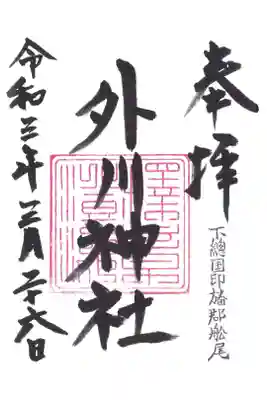 奉拝
下總国印旛郡舩尾
外川神社
令和三年二月二十六日